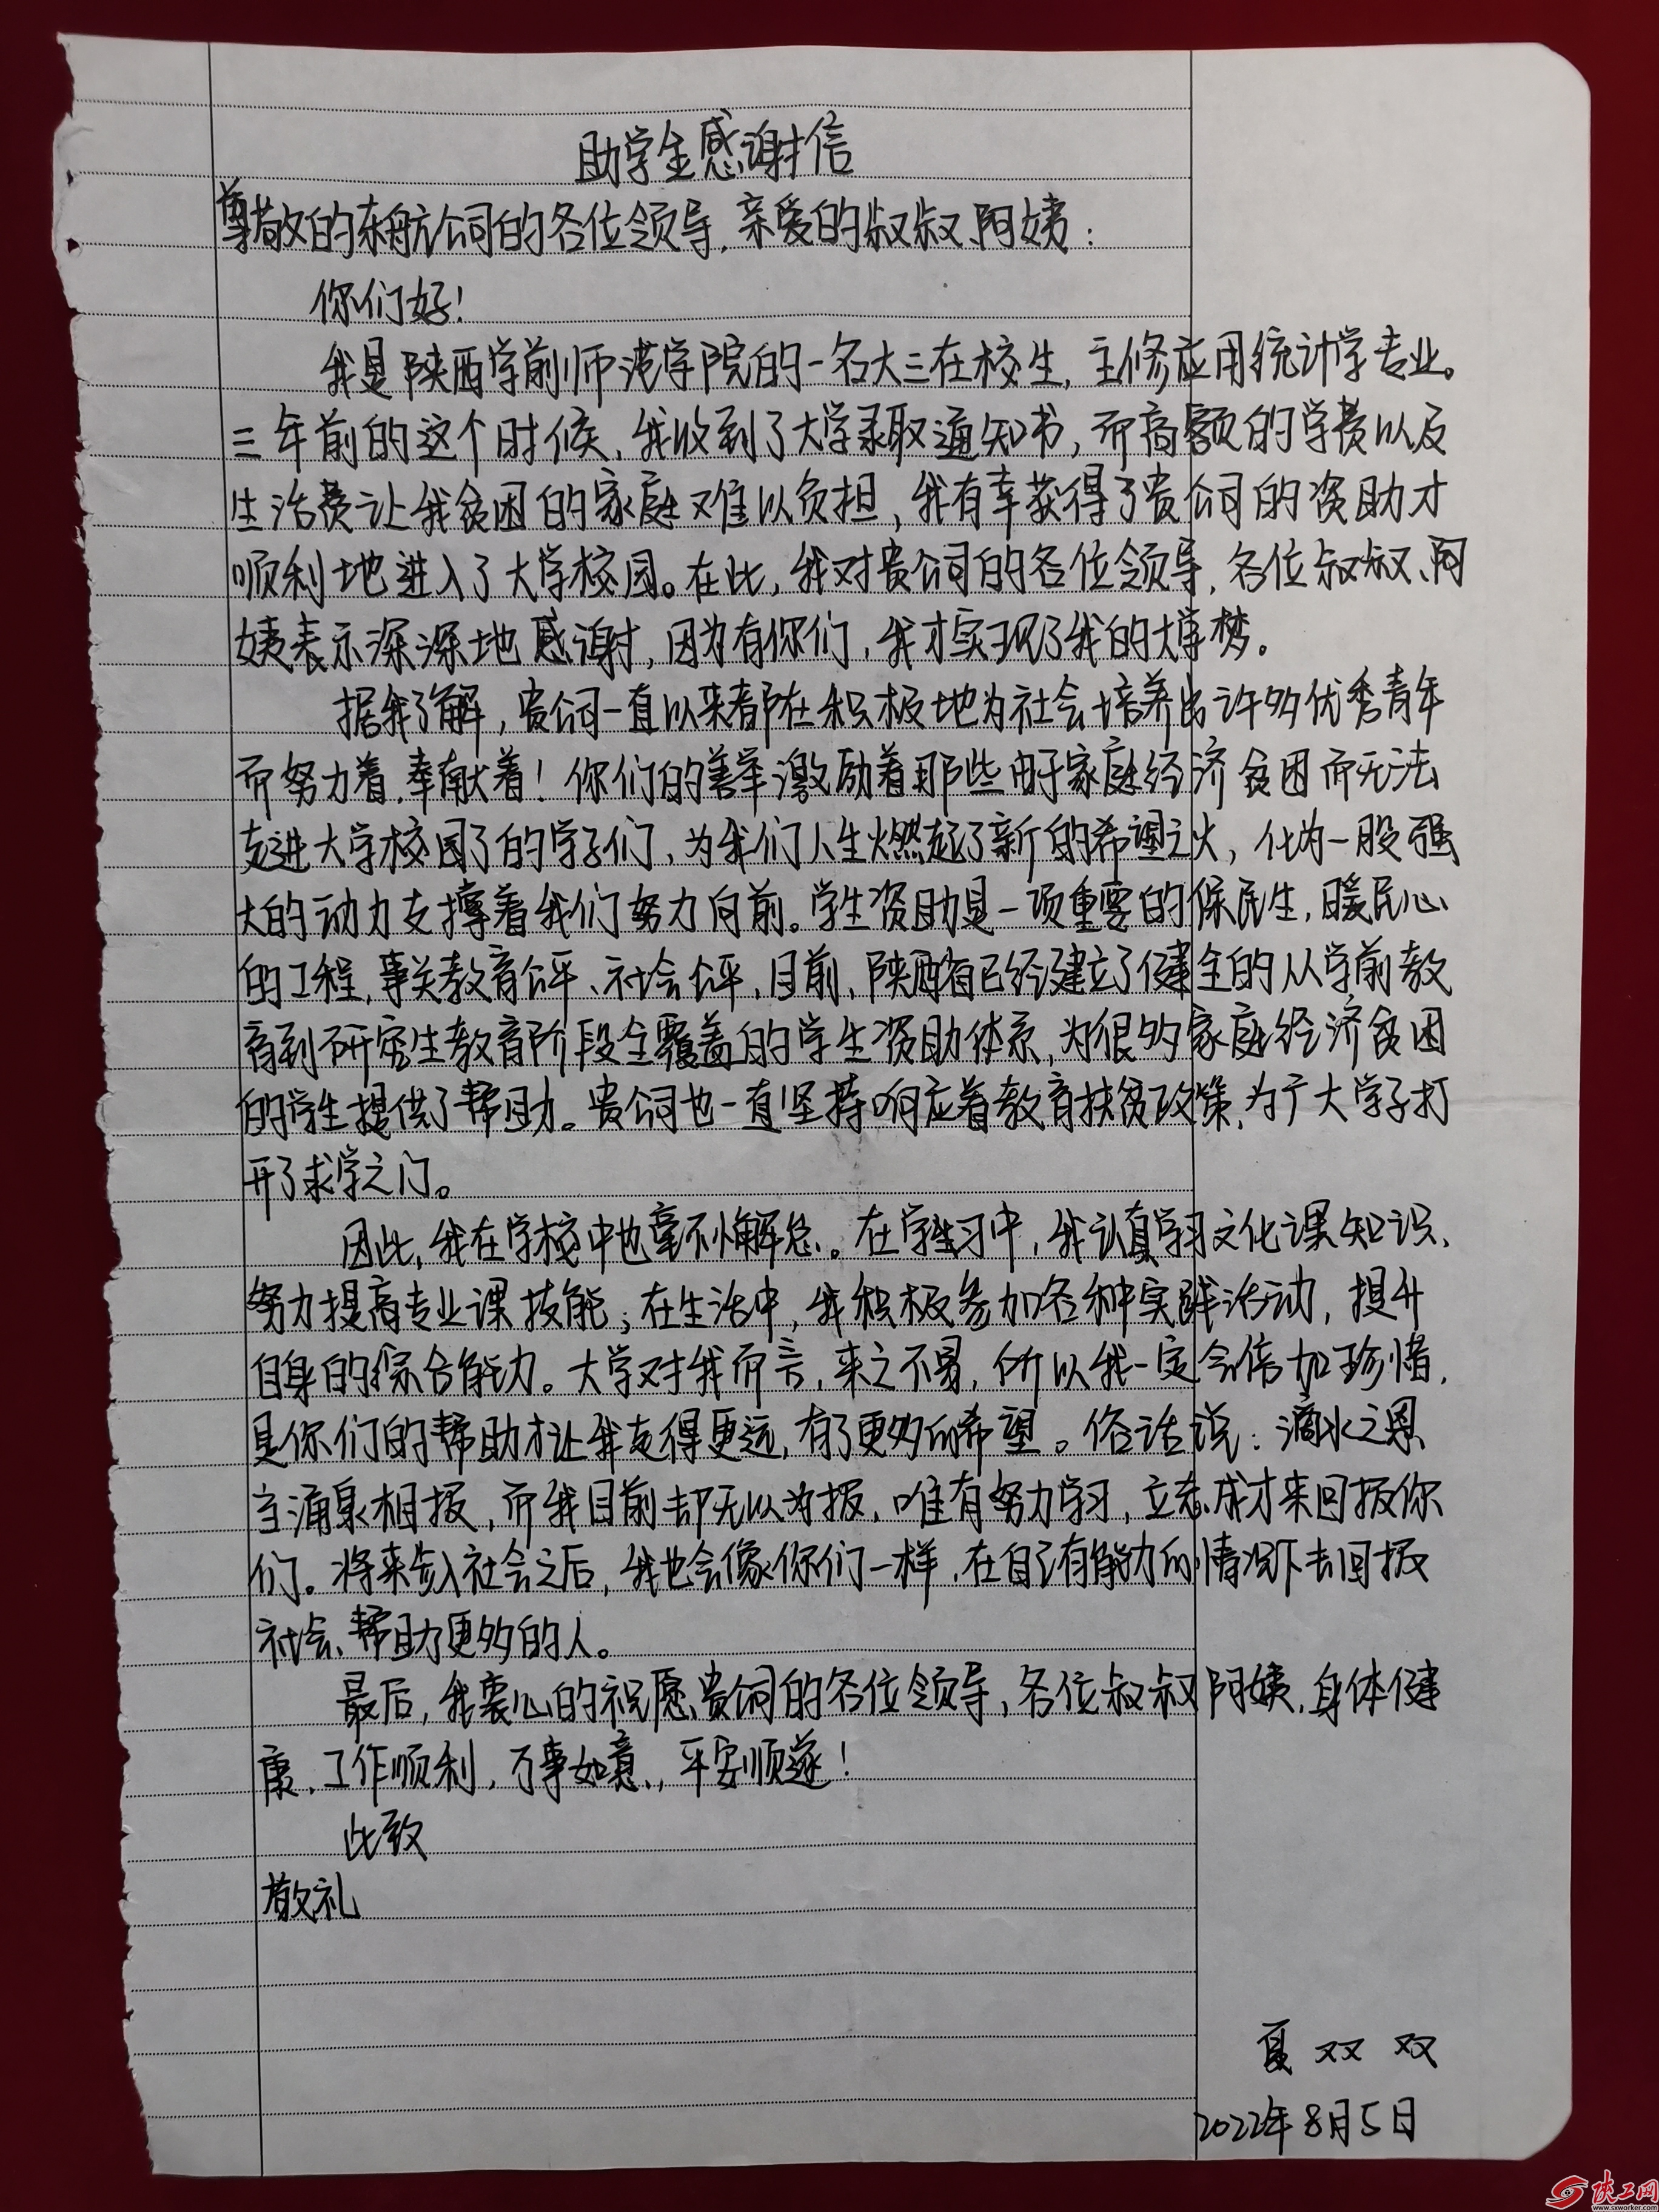 助学生感谢信
尊敬的东航公司的各位领导,亲爱的叔叔、阿姨:
你们好!
我是陕西学前师范学院的一名大三在校生,主修应用统计学专业。
三年前的这个时候,我收到了大学录取通知书,而高额的学费以及
生活费让我贫困的家庭难以负担,我有幸获得了贵公司的资助才
顺利地进入了大学校园。在此,我对贵公司的各位领导,各位叔叔、阿
姨表示深深地感谢,因为有你们,我才实现了我的大学梦。
据我了解,贵公司一直以来都在积极地为社会培养出许多优秀青年
而努力着,奉献着!你们的善举激励着那些由于家庭经济贫困而无法
走进大学校园了的学子们,为我们人生燃起了新的希望之火,化为一股强
大的动力支撑着我们努力向前。学生资助是一项重要的保民生,暖民心
的工程,事关教育公平、社会公平,目前,陕西省已经建立了健全的从学前教
育到研究生教育阶段全覆盖的学生资助体系,为很多家庭经济贫困
的学生提供了帮助。贵公司也一直坚持响应着教育扶贫政策,为广大学子打
开了求学之门。
因此,我在学校中也毫不懈怠。在学生习中,我认真学习文化课知识,
努力提高专业课技能;在生活中,我积极参加各种实践活动,提升
自身的综合能力。大学对我而言,来之不易,所以我一定会倍加珍惜,
是你们的帮助才让我走得更远,有了更多的希望。俗话说:滴水之恩
当涌泉相报,而我目前却无以为报,唯有努力学习,立志成才来回报你
们。将来步入社会之后,我也会像你们一样,在自己有能力的情况下去回报
社会、帮助更多的人。
最后,我衷心的祝愿贵公司的各位领导,各位叔叔阿姨,身体健
康,工作顺利,万事如意,平安顺遂!
此致
敬礼
夏双双
2022年8月5日
陕工网
www.sxworker.com